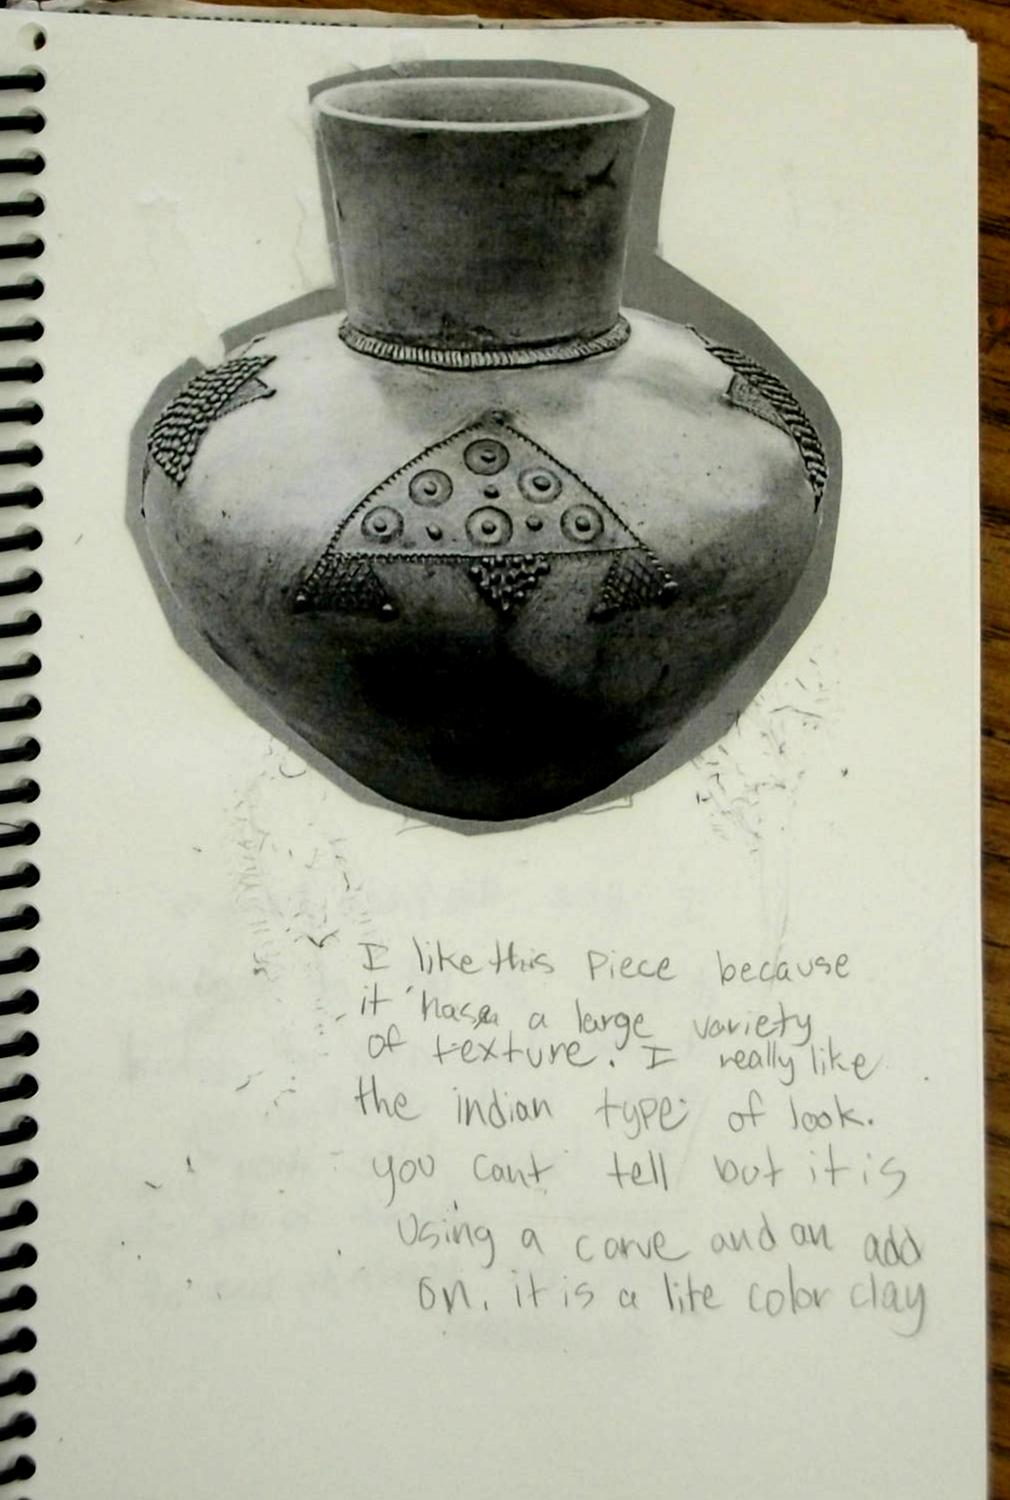 I like this piece because
it has a large variety
of texture. I really like
the indian type of look.
you cant tell but it is
Using a carve and an add
on. it is a lite color clay